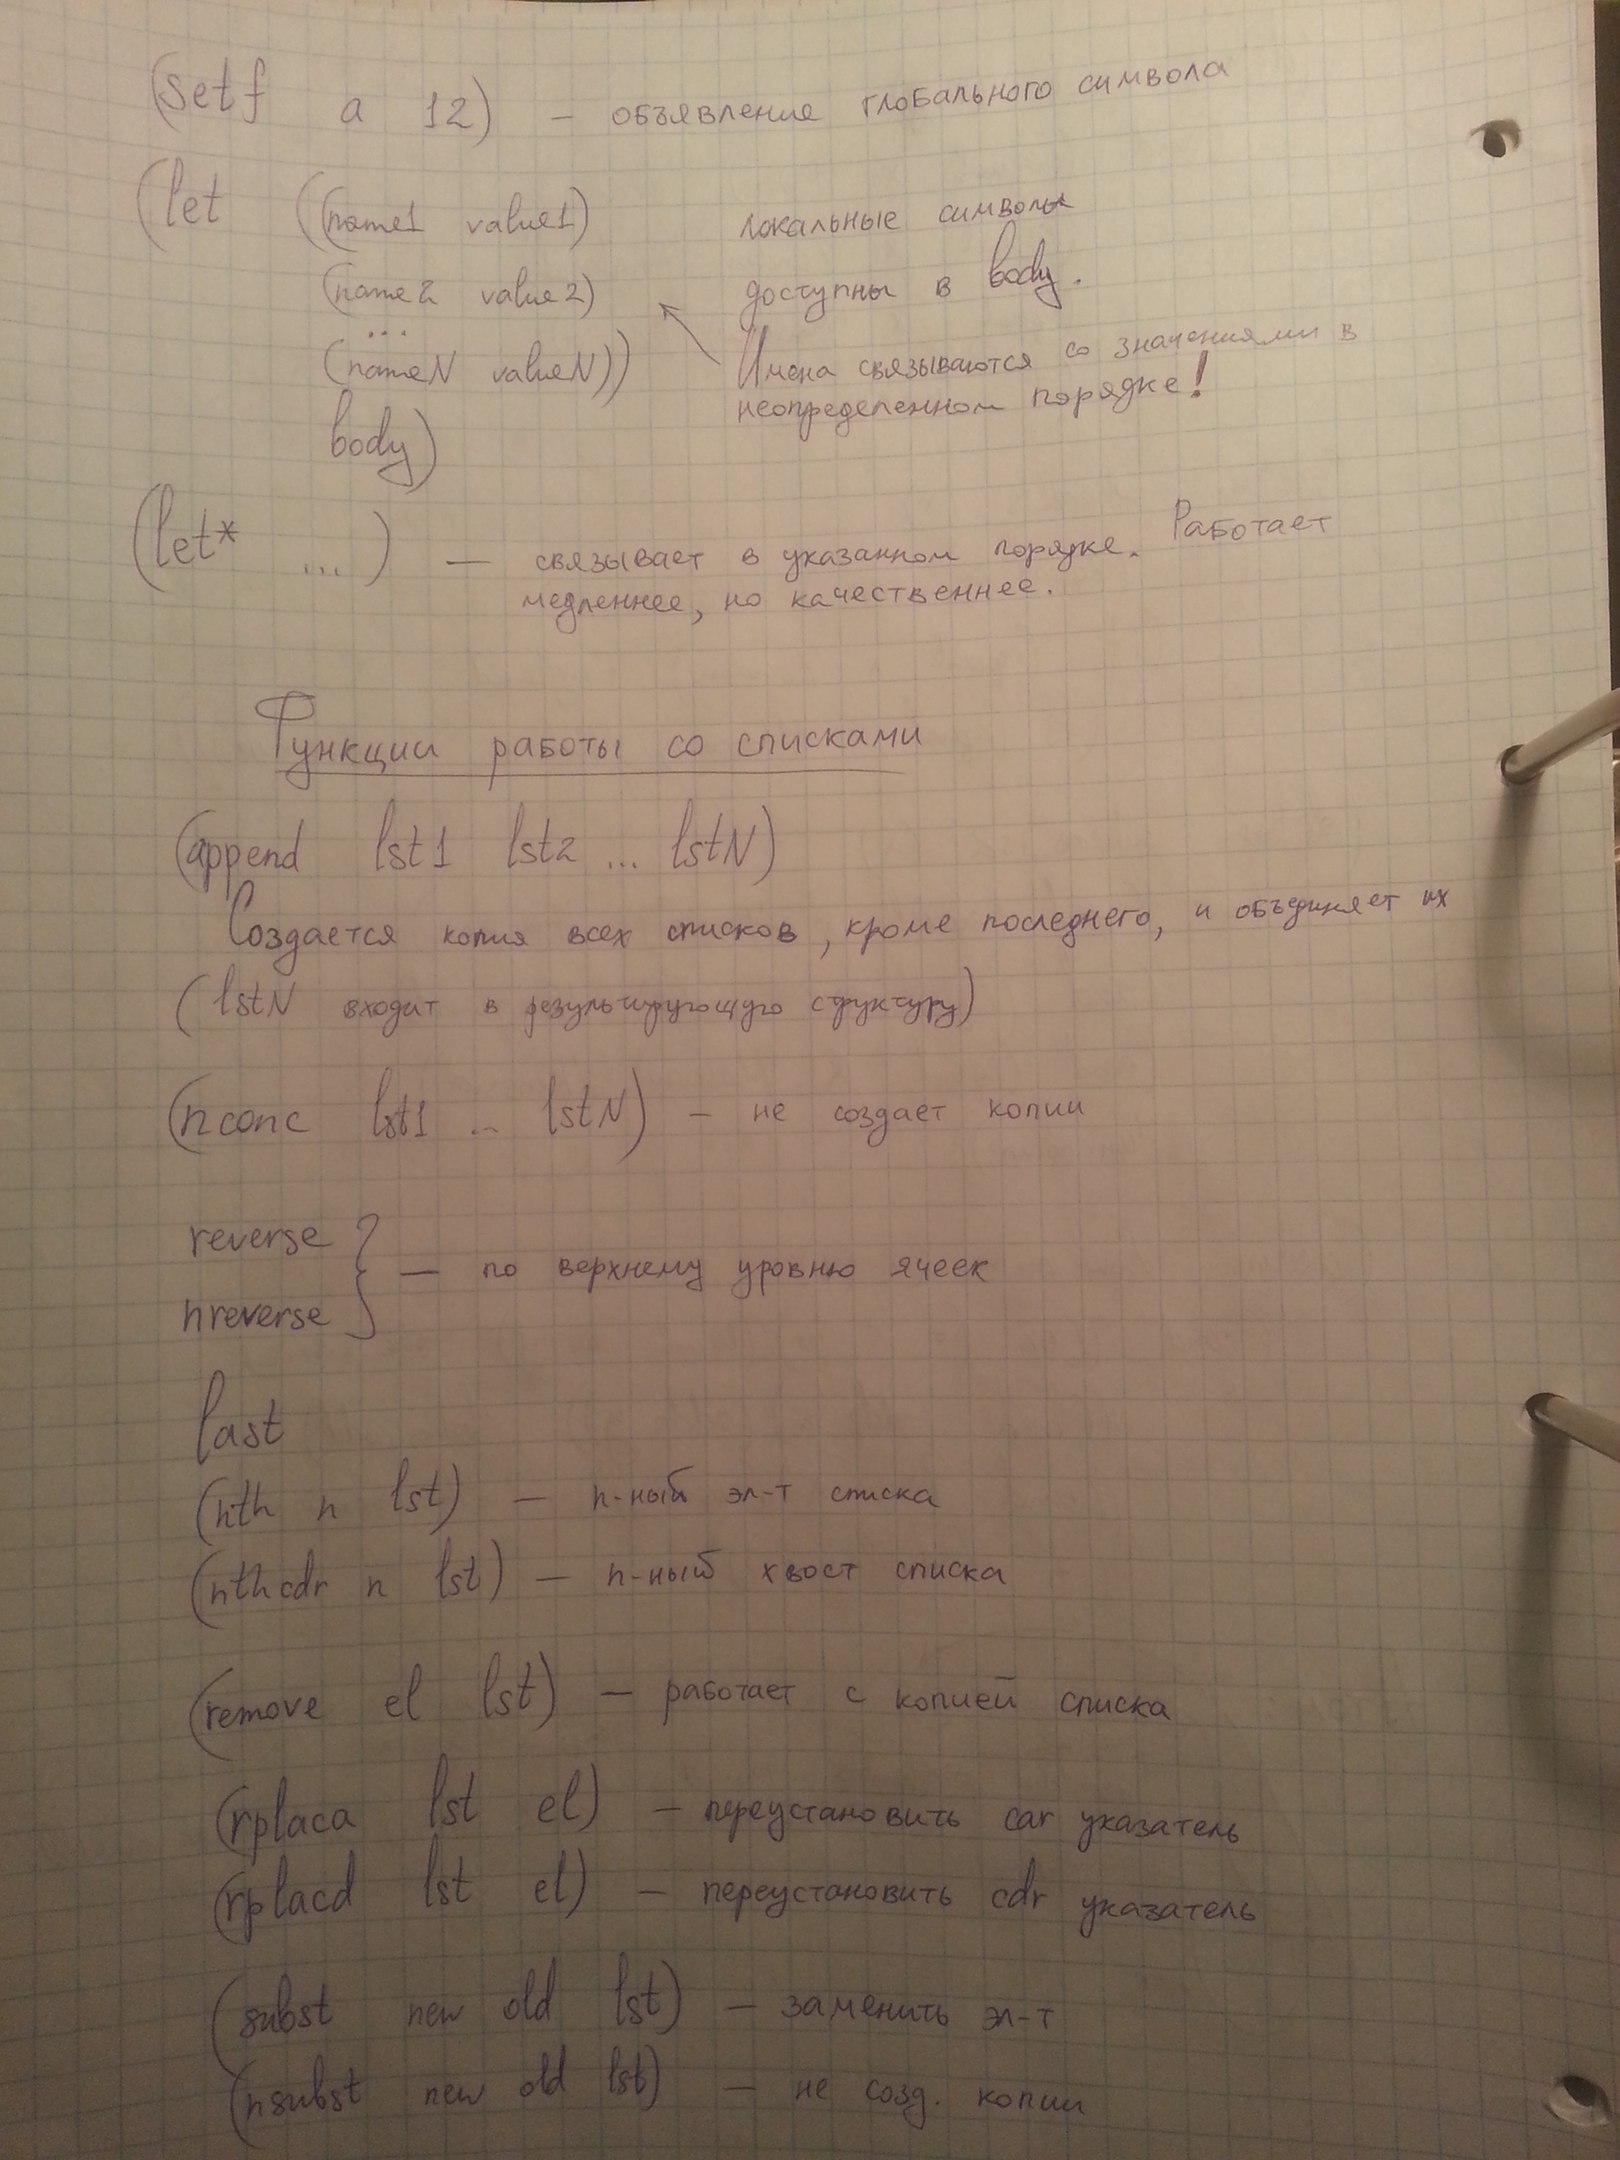 (setf a 12) — объявление глобального символа
(let ((name1 value1) локальные символы
(name2 value2) доступны в body.
...
(nameN valueN)) Имена связываются со значениями в
неопределенном порядке!
body)
(let* ...) — связывает в указанном порядке. Работает
медленнее, но качественнее.
Функции работы со списками
(append lst1 lst2 ... lstN)
Создается копия всех списков, кроме последнего, и объединяет их
(lstN входит в результирующую структуру)
(nconc lst1 .. lstN) — не создает копии
reverse
— по верхнему уровню ячеек
nreverse
last
(nth n lst) — n-ный эл-т списка
(nthcdr n lst) — n-ный хвост списка
(remove el lst) — работает с копией списка
(rplaca lst el) — переустановить car указатель
(rplacd lst el) — переустановить cdr указатель
(subst new old lst) — заменить эл-т
(nsubst new old lst) — не созд. копии